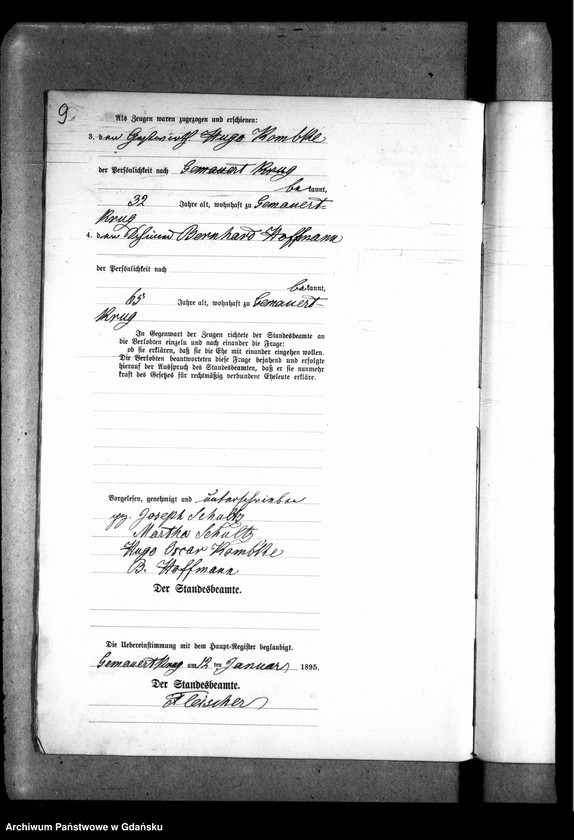 9.
Als Zeugen waren zugezogen und erschienen:
3. den Gastwirth Hugo Kombke
der Persönlichkeit nach Gemauert Krug
be kannt,
32 Jahre alt, wohnhaft zu Gemauert-
krug
4. den Bernhard Hoffmann
der Persönlichkeit nach
be kannt,
65 Jahre alt, wohnhaft zu Gemauert-
krug
In Gegenwart der Zeugen richtete der Standesbeamte an
die Verlobten einzeln und nach einander die Frage:
ob sie erklären, daß sie die Ehe mit einander eingehen wollen.
Die Verlobten beantworteten diese Frage bejahend und erfolgte
hierauf der Ausspruch des Standesbeamten, daß er sie nunmehr
kraft des Gesetzes für rechtmäßig verbundene Eheleute erkläre.
Vorgelesen, genehmigt und unterschrieben
gez. Joseph Schultz
Martha Schultz
Hugo Oscar Kombke
B. Hoffmann
Der Standesbeamte.
Die Uebereinstimmung mit dem Haupt-Register beglaubigt.
Gemauert Krug am 12 ten Januar 1895.
Der Standesbeamte.
Fleischer
Archiwum Państwowe w Gdańsku